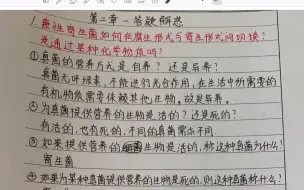 第二章－答疑解惑
1.兼性寄生菌如何在腐生形式与寄生形式间切换？
是通过某种化学物质吗？
①真菌的营养方式是自养？还是异养？
真菌无叶绿素，不能进行光合作用，在生活中所需要的
有机物质需要依赖其他生物。故是异养。
②为真菌提供营养的生物是活的？还是死的？
有活的，也有死的，不同的真菌需求不同.
③如果提供营养的生物是活的，称这种真菌为什么？
寄生菌
④如果为某种真菌提供营养的生物是死的，则这种真菌称什么？